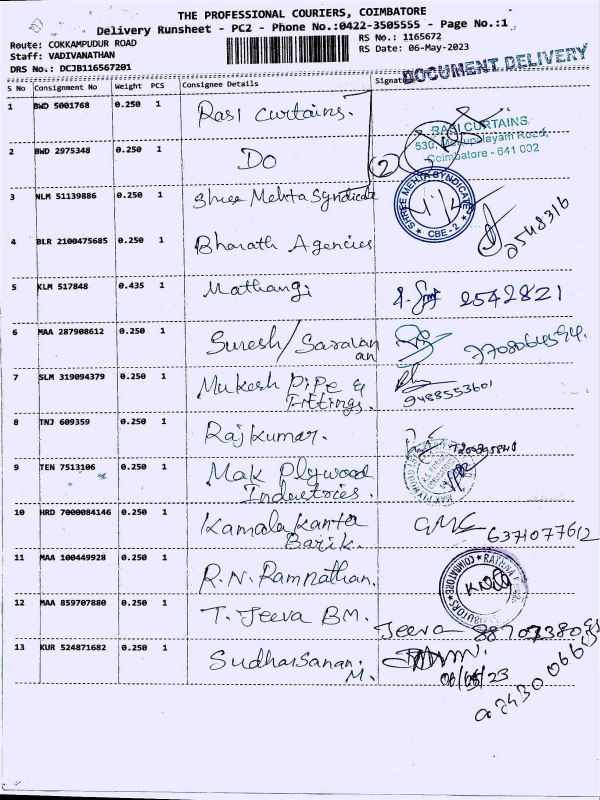 THE PROFESSIONAL COURIERS, COIMBATORE
Delivery Runsheet - PC2 - Phone No.:0422-3505555 - Page No.:1
Route: COKKAMPUDUR ROAD
Staff: VADIVANATHAN
DRS No.: DCJB116567201
RS No.: 1165672
RS Date: 06-May-2023
DOCUMENT DELIVERY
S No Consignment No Weight PCS Consignee Details Signat
1 BWD 5001768 0.250 1 Rasi Curtains.
RASI CURTAINS
Coimbatore - 641 002
2 BWD 2975348 0.250 1 DO 2
3 NLM 51139886 0.250 1 Shree Mehta Syndicate
SHREE MEHTA SYNDICATE CBE-2
4 BLR 2100475685 0.250 1 Bharath Agencies 2548316
5 KLM 517848 0.435 1 Mathangi 2542821
6 MAA 287908612 0.250 1 Suresh/Saravan
an
7 SLM 319094379 0.250 1 Mukesh Pipe &
Fittings. 9488553601
8 TNJ 609359 0.250 1 Rajkumar.
9 TEN 7513106 0.250 1 Mak Plywood
Industories.
10 HRD 7000084146 0.250 1 Kamala Kanta
Barik. 6371077612
11 MAA 100449928 0.250 1 R.N. Ramnathan.
COIMBATORE
12 MAA 859707880 0.250 1 T. Jeeva BM.
Jeeva
13 KUR 524871682 0.250 1 Sudharsanan.
M. 06/05/23